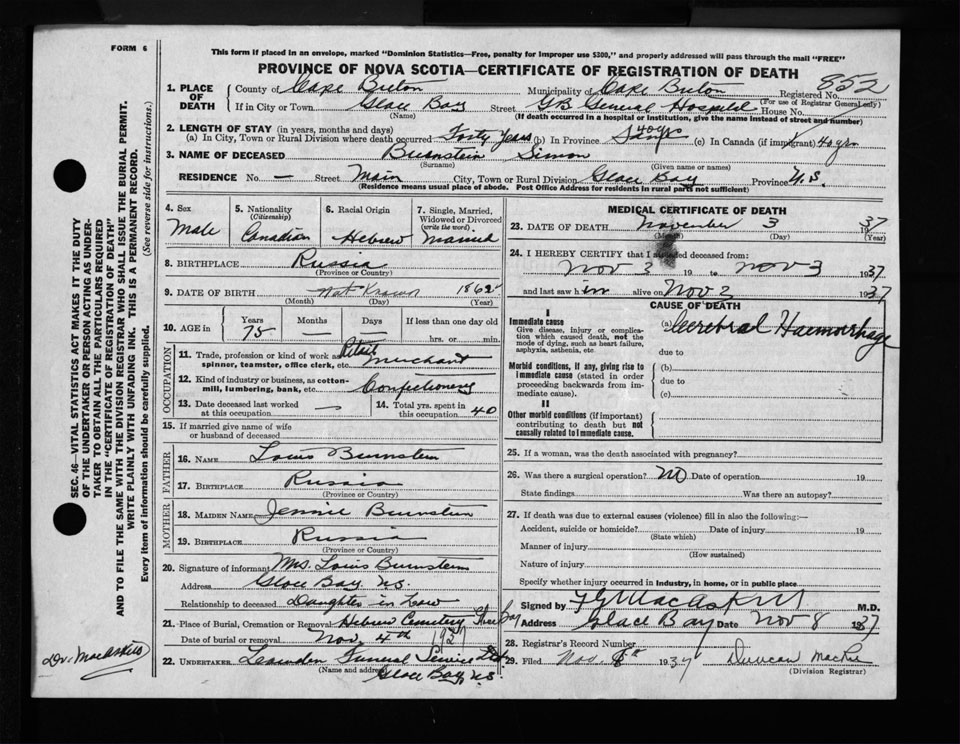 FORM 6
This form if placed in an envelope, marked "Dominion Statistics—Free, penalty for improper use $300," and properly addressed will pass through the mail "FREE"
PROVINCE OF NOVA SCOTIA—CERTIFICATE OF REGISTRATION OF DEATH
852
1. PLACE OF DEATH
County of Cape Breton Municipality of Cape Breton Registered No.
(For use of Registrar General only)
If in City or Town Glace Bay Street GB General Hospital House No.
(Name) (If death occurred in a hospital or institution, give the name instead of street and number)
2. LENGTH OF STAY (in years, months and days)
(a) In City, Town or Rural Division where death occurred Forty Years (b) In Province 40 yrs (c) In Canada (if immigrant) 40 yrs
3. NAME OF DECEASED Burnstein Simon
(Surname) (Given name or names)
RESIDENCE No. — Street Main City, Town or Rural Division Glace Bay Province N.S.
(Residence means usual place of abode. Post Office Address for residents in rural parts not sufficient)
4. Sex
Male
5. Nationality
(Citizenship)
Canadian
6. Racial Origin
Hebrew
7. Single, Married, Widowed or Divorced
(write the word)
Married
8. BIRTHPLACE Russia
(Province or Country)
9. DATE OF BIRTH Not Known 1862
(Month) (Day) (Year)
10. AGE in
Years Months Days If less than one day old
75 — — hrs. or min.
OCCUPATION
11. Trade, profession or kind of work as spinner, teamster, office clerk, etc. Retail Merchant
12. Kind of industry or business, as cotton-mill, lumbering, bank, etc. Confectionery
13. Date deceased last worked at this occupation —
14. Total yrs. spent in this occupation 40
15. If married give name of wife or husband of deceased
FATHER
16. NAME Louis Burnstein
17. BIRTHPLACE Russia
(Province or Country)
MOTHER
18. MAIDEN NAME Jennie Burnstein
19. BIRTHPLACE Russia
(Province or Country)
20. Signature of informant Mrs. Louis Burnstein
Address Glace Bay N.S.
Relationship to deceased Daughter in Law
21. Place of Burial, Cremation or Removal Hebrew Cemetery Glace Bay
Date of burial or removal Nov. 4th 1937
22. UNDERTAKER Funeral Service Ltd
(Name and address)
Glace Bay, N.S.
MEDICAL CERTIFICATE OF DEATH
23. DATE OF DEATH November 3 1937
(Month) (Day) (Year)
24. I HEREBY CERTIFY that I attended deceased from:
Nov 3 19 to Nov 3 1937
and last saw him alive on Nov 2 1937
CAUSE OF DEATH
I
Immediate cause
Give disease, injury or complication which caused death, not the mode of dying, such as heart failure, asphyxia, asthenia, etc.
(a) Cerebral Haemorrhage
due to
Morbid conditions, if any, giving rise to immediate cause (stated in order proceeding backwards from immediate cause).
(b)
due to
(c)
II
Other morbid conditions (if important) contributing to death but not causally related to immediate cause.
25. If a woman, was the death associated with pregnancy?
26. Was there a surgical operation? No Date of operation 19
State findings Was there an autopsy?
27. If death was due to external causes (violence) fill in also the following:—
Accident, suicide or homicide? Date of injury 19
(State which)
Manner of injury
(How sustained)
Nature of injury
Specify whether injury occurred in industry, in home, or in public place
Signed by MacAskill M.D.
Address Glace Bay Date Nov 8 1937
28. Registrar's Record Number
29. Filed Nov. 8th 1937 Duncan MacRae
(Division Registrar)
SEC. 46—VITAL STATISTICS ACT MAKES IT THE DUTY
OF THE UNDERTAKER OR PERSON ACTING AS UNDER-
TAKER TO OBTAIN ALL THE PARTICULARS REQUIRED
IN THE "CERTIFICATE OF REGISTRATION OF DEATH"
AND TO FILE THE SAME WITH THE DIVISION REGISTRAR WHO SHALL ISSUE THE BURIAL PERMIT.
WRITE PLAINLY WITH UNFADING INK. THIS IS A PERMANENT RECORD.
Every item of information should be carefully supplied. (See reverse side for instructions.)
Dr. MacAskill